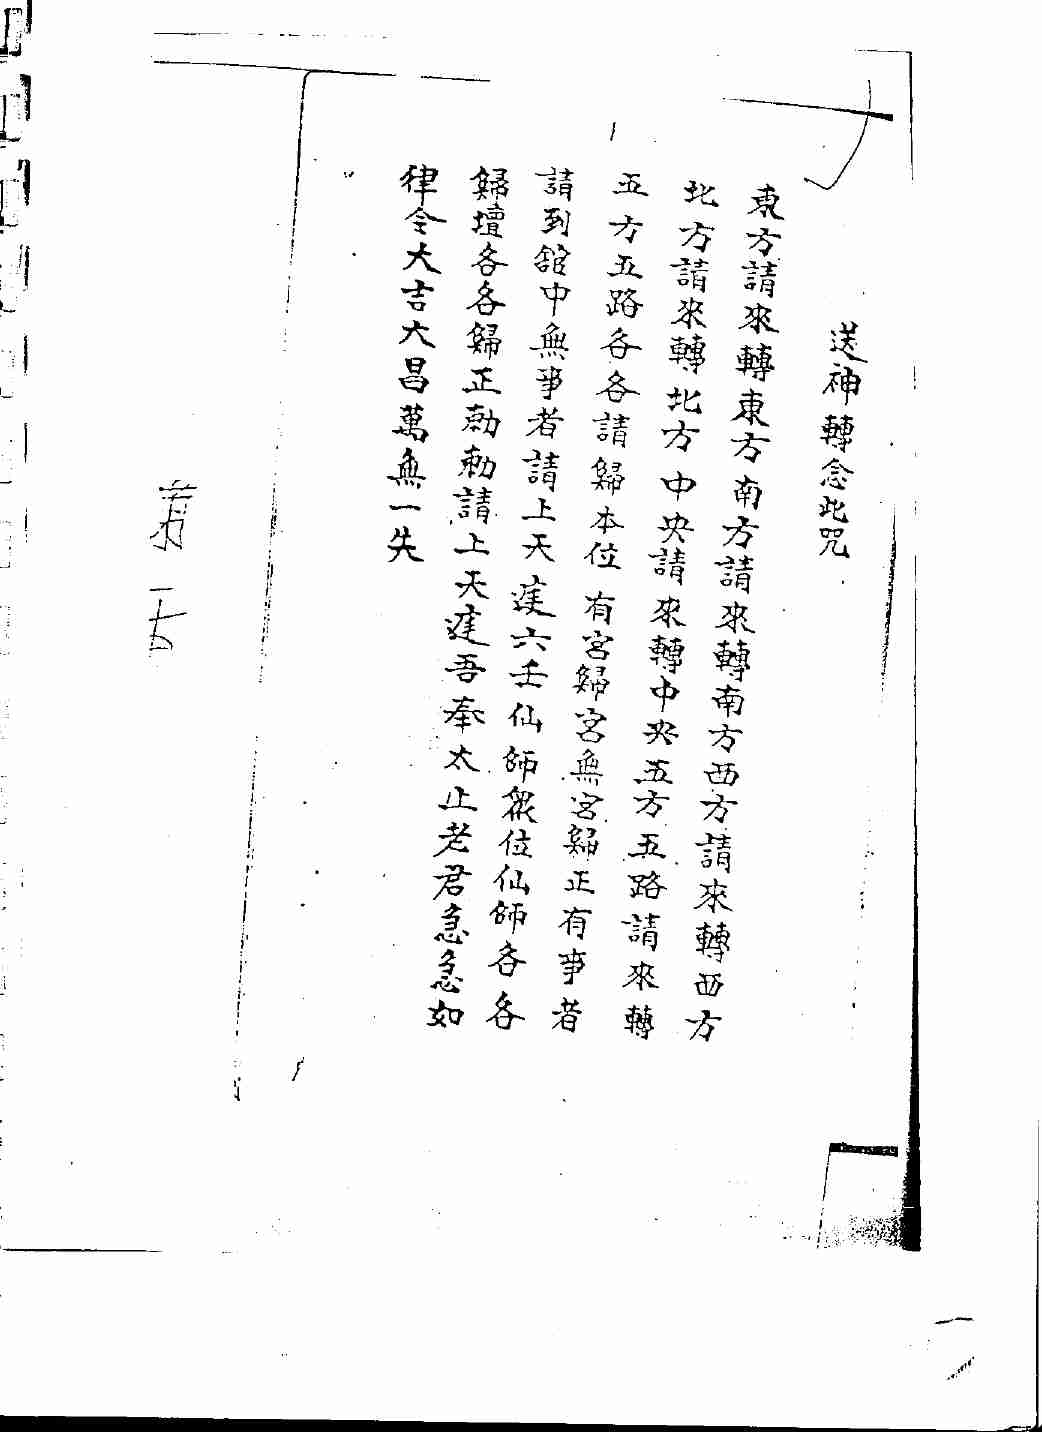 送神轉念此咒
東方請來轉東方南方請來轉南方西方請來轉西方
北方請來轉北方中央請來轉中央五方五路請來轉
五方五路各各請歸本位有宮歸宮無宮歸正有事者
請到舘中無事者請上天莛六壬仙師眾位仙師各各
歸壇各各歸正勅勅請上天莛吾奉太上老君急急如
律令大吉大昌萬無一失